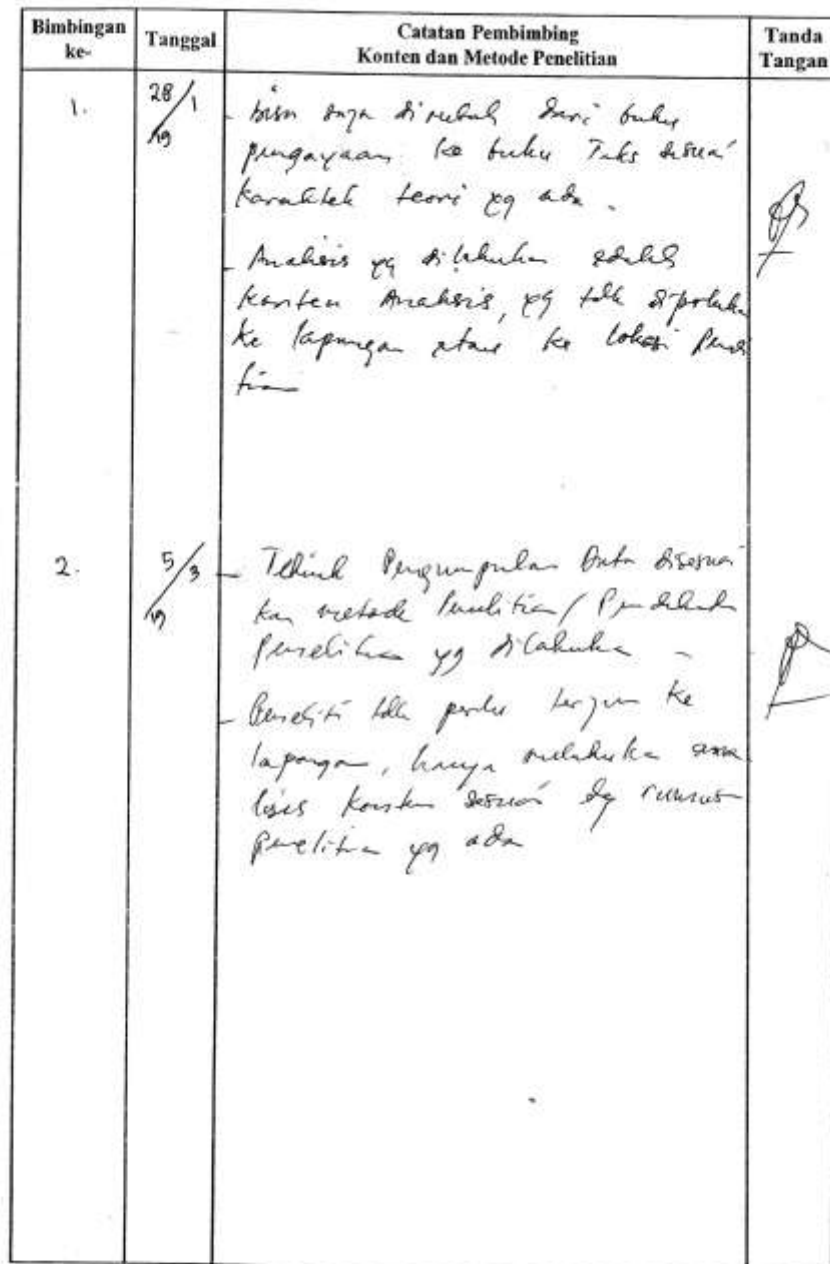 Bimbingan ke-
Tanggal
Catatan Pembimbing
Konten dan Metode Penelitian
Tanda Tangan
1.
28/1/19
- bisa saja dirubah dari buku
pengayaan ke buku Teks sesuai
karakter teori yg ada.
- Analisis yg dilakukan adalah
konten Analisis, yg tdk diperlukan
ke lapangan atau ke lokasi Peneli
tian
2.
5/3/19
- Teknik Pengumpulan Data disesuai
kan metode Penelitian / Pendekatan
Penelitian yg dilakukan -
- Peneliti tdk perlu terjun ke
lapangan, hanya melakukan ana
lisis konten sesuai dg rumusan
penelitian yg ada